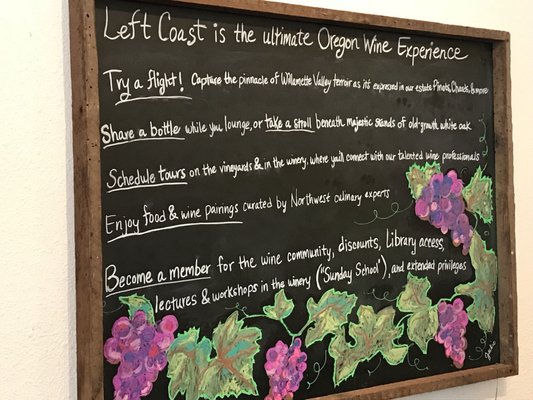 Left Coast is the ultimate Oregon Wine Experience
Try a flight! Capture the pinnacle of Willamette Valley terroir as it's expressed in our estate Pinots, Chards, & more
Share a bottle while you lounge, or take a stroll beneath majestic stands of old-growth white oak
Schedule tours on the vineyards & in the winery, where you'll connect with our talented wine professionals
Enjoy food & wine pairings curated by Northwest culinary experts
Become a member for the wine community, discounts, Library access,
lectures & workshops in the winery ("Sunday School"), and extended privileges